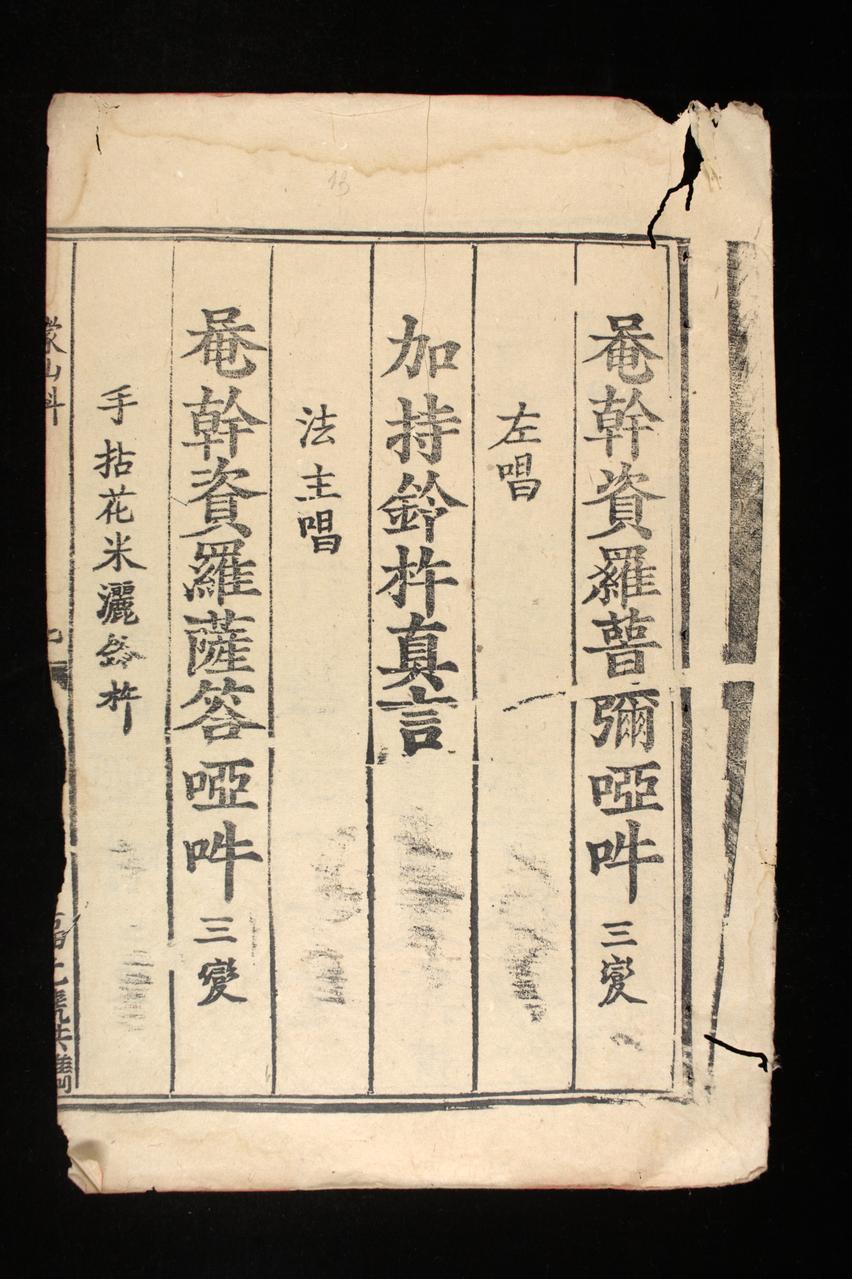 唵幹資羅普彌啞吽三變
左唱
加持鈴杵真言
法主唱
唵幹資羅薩答啞吽三變
手拈花米灑鈴杵
蒙山科